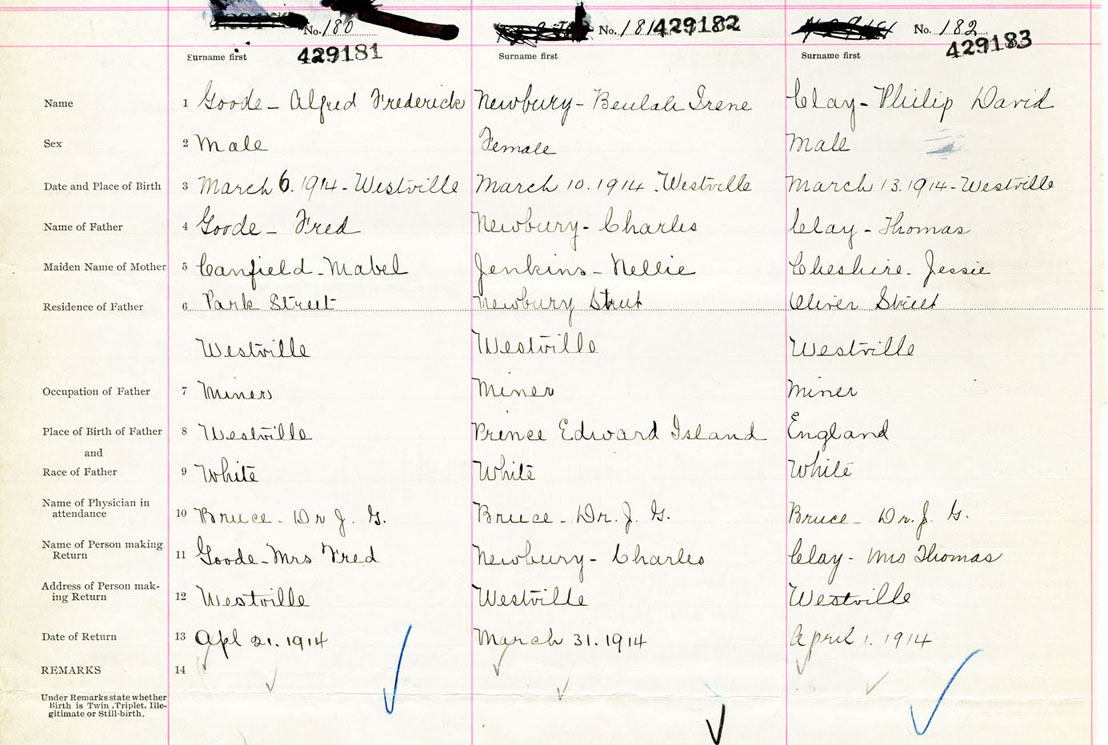 No. 180 No. 181 429182 No. 182
Surname first 429181 Surname first Surname first 429183
Name 1 Goode - Alfred Frederick Newbury - Beulah Irene Clay - Philip David
Sex 2 Male Female Male
Date and Place of Birth 3 March 6. 1914 - Westville March 10. 1914. Westville March 13. 1914 - Westville
Name of Father 4 Goode - Fred Newbury - Charles Clay - Thomas
Maiden Name of Mother 5 Canfield - Mabel Jenkins - Nellie Cheshire - Jessie
Residence of Father 6 Park Street Newbury Street Oliver Street
Westville Westville Westville
Occupation of Father 7 Miner Miner Miner
Place of Birth of Father 8 Westville Prince Edward Island England
and
Race of Father 9 White White White
Name of Physician in
attendance 10 Bruce - Dr J. G. Bruce - Dr. J. G. Bruce - Dr. J. G.
Name of Person making
Return 11 Goode - Mrs Fred Newbury - Charles Clay - Mrs Thomas
Address of Person mak-
ing Return 12 Westville Westville Westville
Date of Return 13 Apl 21. 1914 March 31. 1914 April 1. 1914
REMARKS 14
Under Remarks state whether
Birth is Twin, Triplet, Ille-
gitimate or Still-birth.